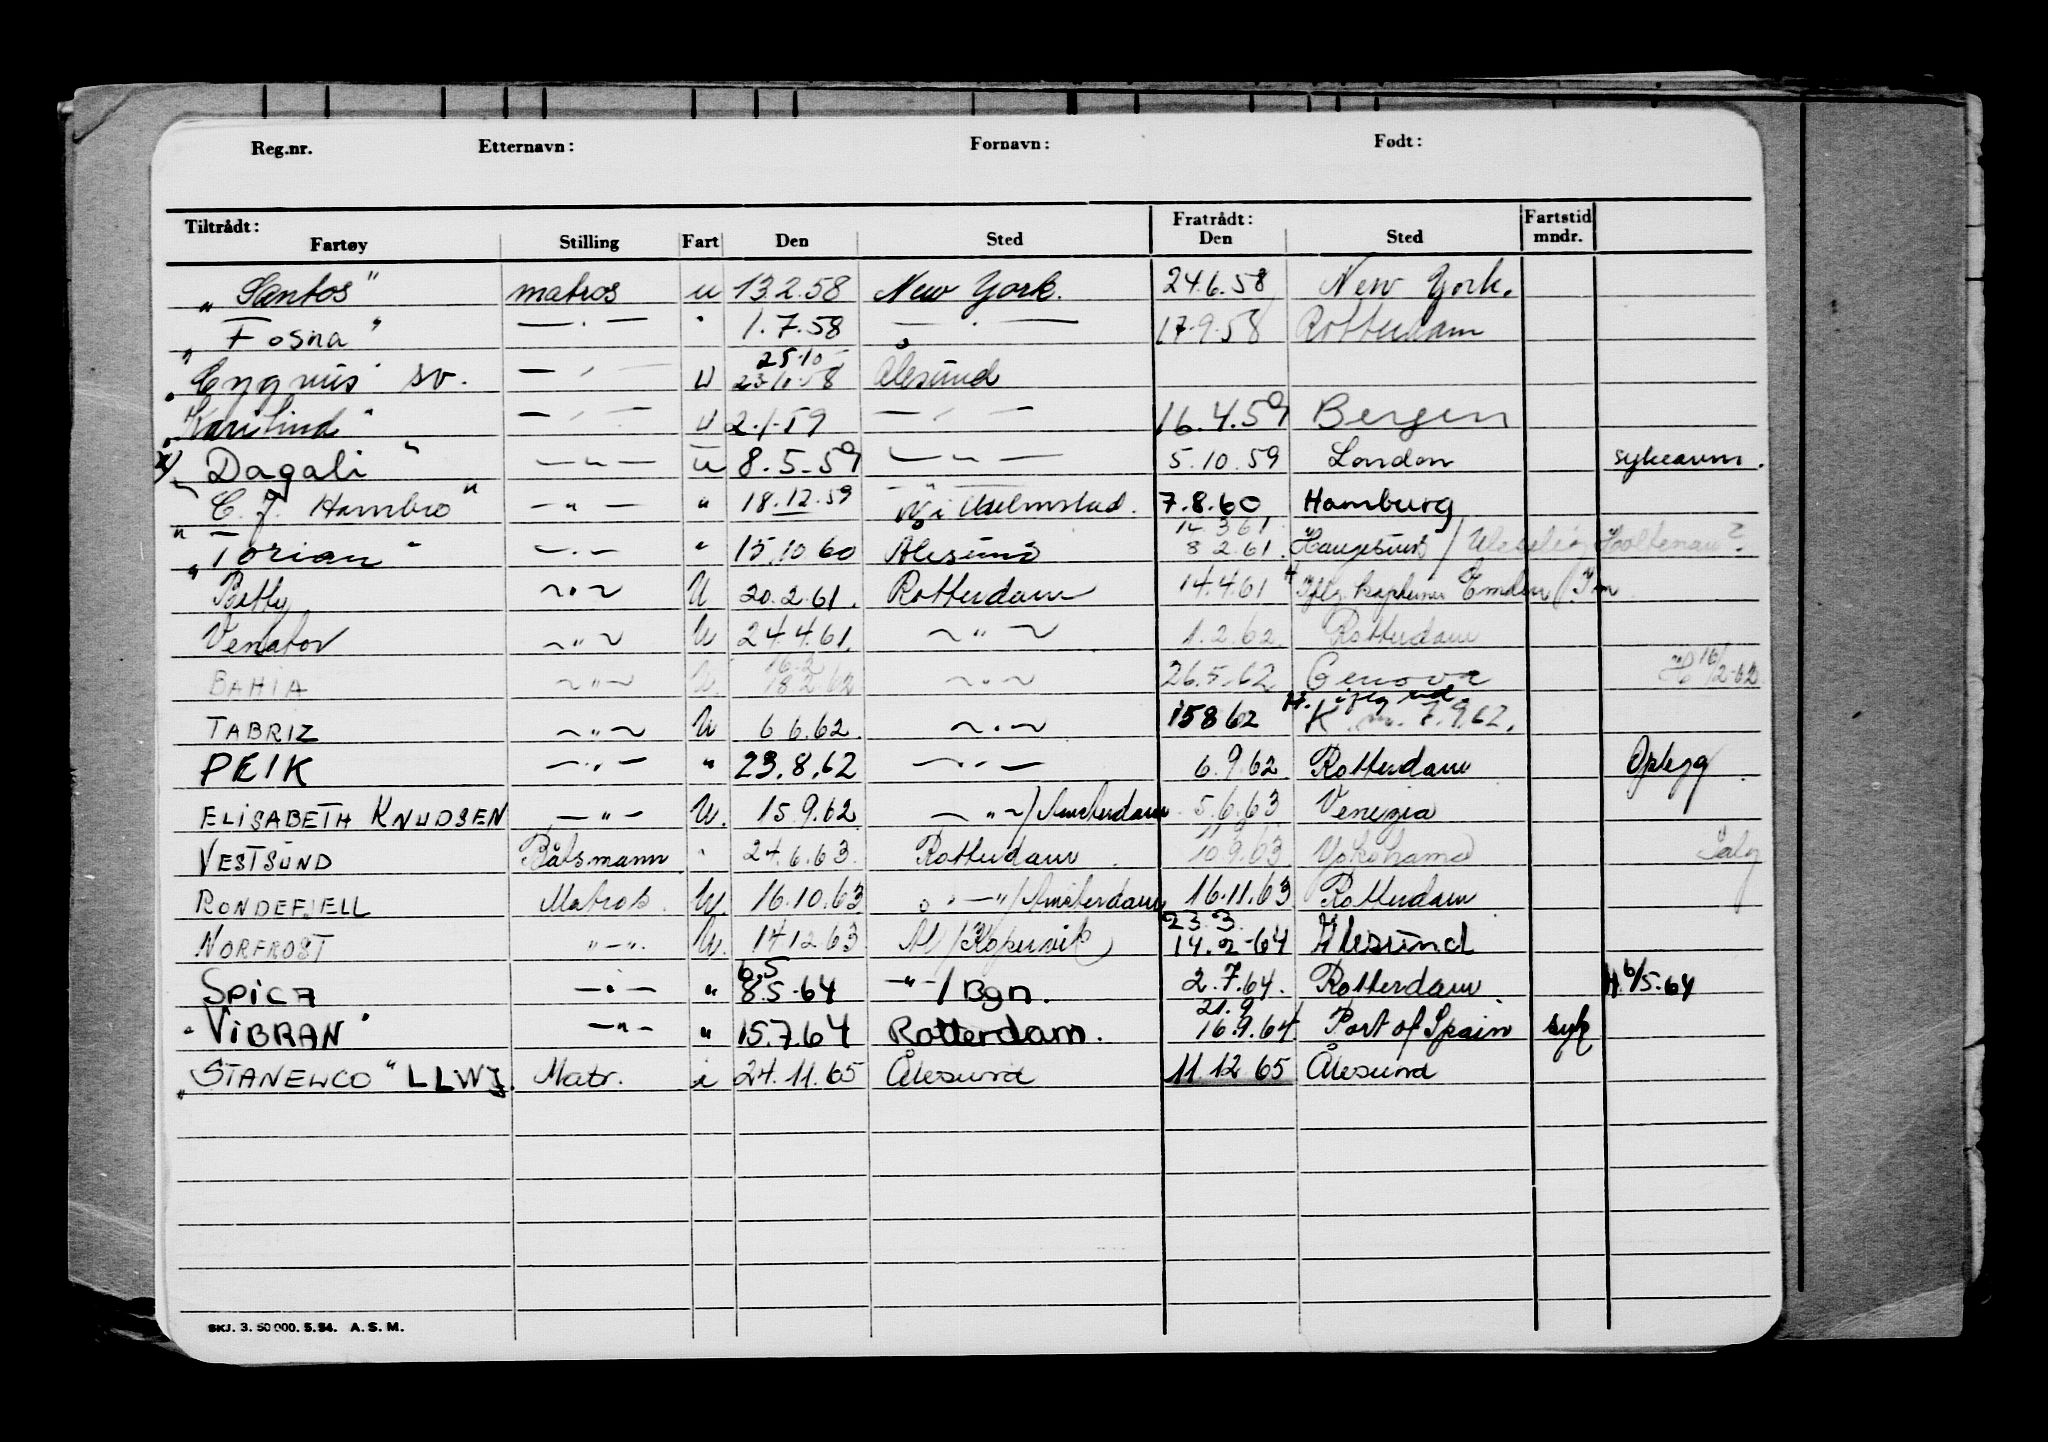 Reg.nr. Etternavn: Fornavn: Født:
Tiltrådt: Fratrådt: Fartstid
Fartøy Stilling Fart Den Sted Den Sted mndr.
„Santos" matros u 13.2.58 New York. 24.6.58 New York.
„Fosna" — . — " 1.7.58 — . — 17.9.58 Rotterdam
25.10
„Cygnus" sv. — . — U 23.10.58 Ålesund
„Karilind" — . — U 2.1.59 — . — 16.4.59 Bergen
x) „Dagali" — " — u 8.5.59 — " — 5.10.59 London sykeavm.
„C. J. Hambro" — " — " 18.12.59 7.8.60 Hamburg
14 3 61
„Torian" — . — " 15.10.60 Ålesund 8 2.61. Haugesund / Holtenau?
Betty ~ . ~ U 20.2.61. Rotterdam 14.4.61 Iflg. kapteinen Emden
Venator ~ " ~ U 24.4.61. ~ " ~ 1.2.62. Rotterdam
16.2
BAHIA ~ " ~ U. 18 2 62 ~ . ~ 26.5.62 Genova H 16/2-62
H. iflg. rd.
TABRIZ ~ " ~ U 6 6.62. ~ . ~ 15 8 62 K 7.9.62.
PEIK — . — " 23.8.62 — . — 6.9.62 Rotterdam Opligg
ELISABETH KNUDSEN — " — U. 15.9.62 ~ " ~ / Amsterdam 5.6.63 Venezia
VESTSUND Båtsmann " 24.6.63. Rotterdam 10.9.63 Yokohama
RONDEFJELL Matros U. 16.10.63 — " / Amsterdam 16.11.63 Rotterdam
23.3.
NORFROST " — ". U. 14 12 63 Ål / Kopervik 14.2-64 Ålesund
6.5
SPICA — . — " 8.5-64 — " — / Bgn. 2.7.64. Rotterdam H 6/5-64
21.9
"VIBRAN" — " — " 15.7.64 Rotterdam. 16.9.64 Port of Spain syk
„STANEWCO" LLWJ. Matr. i 24.11.65 Ålesund 11 12 65 Ålesund
SKJ. 3. 50 000. 5.54. A. S. M.